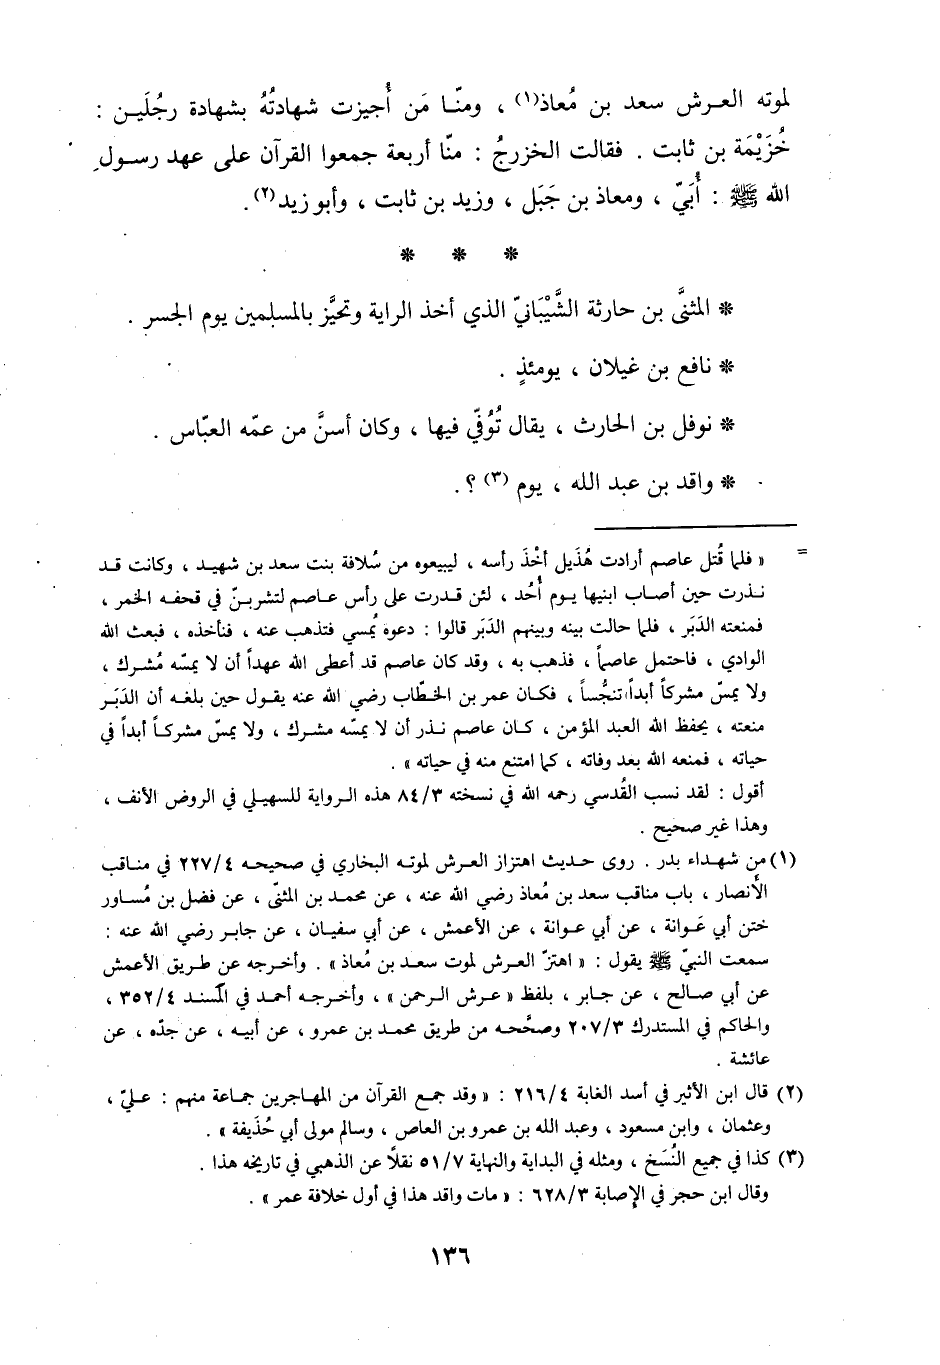 لموته العرش سعد بن مُعاذ(١) ، ومنّا مَن أُجيزت شهادتُهُ بشهادة رجُلَين :
خُزَيْمَة بن ثابت . فقالت الخزرج : منّا أربعة جمعوا القرآن على عهد رسول
الله ﷺ : أُبَيّ ، ومعاذ بن جَبَل ، وزيد بن ثابت ، وأبو زيد(٢).
* * *
* المثنَّى بن حارثة الشَّيْبَانيّ الذي أخذ الراية وتحيَّز بالمسلمين يوم الجسر .
* نافع بن غيلان ، يومئذٍ .
* نوفل بن الحارث ، يقال تُوُفّي فيها ، وكان أسنَّ من عمّه العبّاس .
* واقد بن عبد الله ، يوم (٣) ؟ .
= « فلما قُتل عاصم أرادت هُذَيل أخْذ رأسه ، ليبيعوه من سُلافة بنت سعد بن شهيد ، وكانت قد
نذرت حين أصاب ابنيها يوم أُحُد ، لئن قدرت على رأس عاصم لتشربنّ في قحفه الخمر ،
فمنعته الدَبَر ، فلما حالت بينه وبينهم الدَبَر قالوا : دعوه يُمسي فتذهب عنه ، فنأخذه ، فبعث الله
الوادي ، فاحتمل عاصماً ، فذهب به ، وقد كان عاصم قد أعطى الله عهداً أن لا يمسّه مُشرك ،
ولا يمسّ مشركاً أبداً تنجُّساً ، فكان عمر بن الخطّاب رضي الله عنه يقول حين بلغه أن الدَبَر
منعته ، يحفظ الله العبد المؤمن ، كان عاصم نذر أن لا يمسّه مشرك ، ولا يمسّ مشركاً أبداً في
حياته ، فمنعه الله بعد وفاته ، كما امتنع منه في حياته » .
أقول : لقد نسب القُدسي رحمه الله في نسخته ٨٤/٣ هذه الرواية للسهيلي في الروض الأنف ،
وهذا غير صحيح .
(١) من شهداء بدر . روى حديث اهتزاز العرش لموته البخاري في صحيحه ٢٢٧/٤ في مناقب
الأنصار ، باب مناقب سعد بن مُعاذ رضي الله عنه ، عن محمد بن المثنّى ، عن فضل بن مُساور
ختن أبي عَوانة ، عن أبي عوانة ، عن الأعمش ، عن أبي سفيان ، عن جابر رضي الله عنه :
سمعت النبيّ ﷺ يقول : « اهتزّ العرش لموت سعد بن مُعاذ » . وأخرجه عن طريق الأعمش
عن أبي صالح ، عن جابر ، بلفظ « عرش الرحمن » ، وأخرجه أحمد في المسند ٣٥٢/٤ ،
والحاكم في المستدرك ٢٠٧/٣ وصحَّحه من طريق محمد بن عمرو ، عن أبيه ، عن جدّه ، عن
عائشة .
(٢) قال ابن الأثير في أسد الغابة ٢١٦/٤ : « وقد جمع القرآن من المهاجرين جماعة منهم : عليّ ،
وعثمان ، وابن مسعود ، وعبد الله بن عمرو بن العاص ، وسالم مولى أبي حُذَيفة » .
(٣) كذا في جميع النُسَخ ، ومثله في البداية والنهاية ٥١/٧ نقلاً عن الذهبي في تاريخه هذا .
وقال ابن حجر في الإصابة ٦٢٨/٣ : « مات واقد هذا في أول خلافة عمر » .
١٣٦